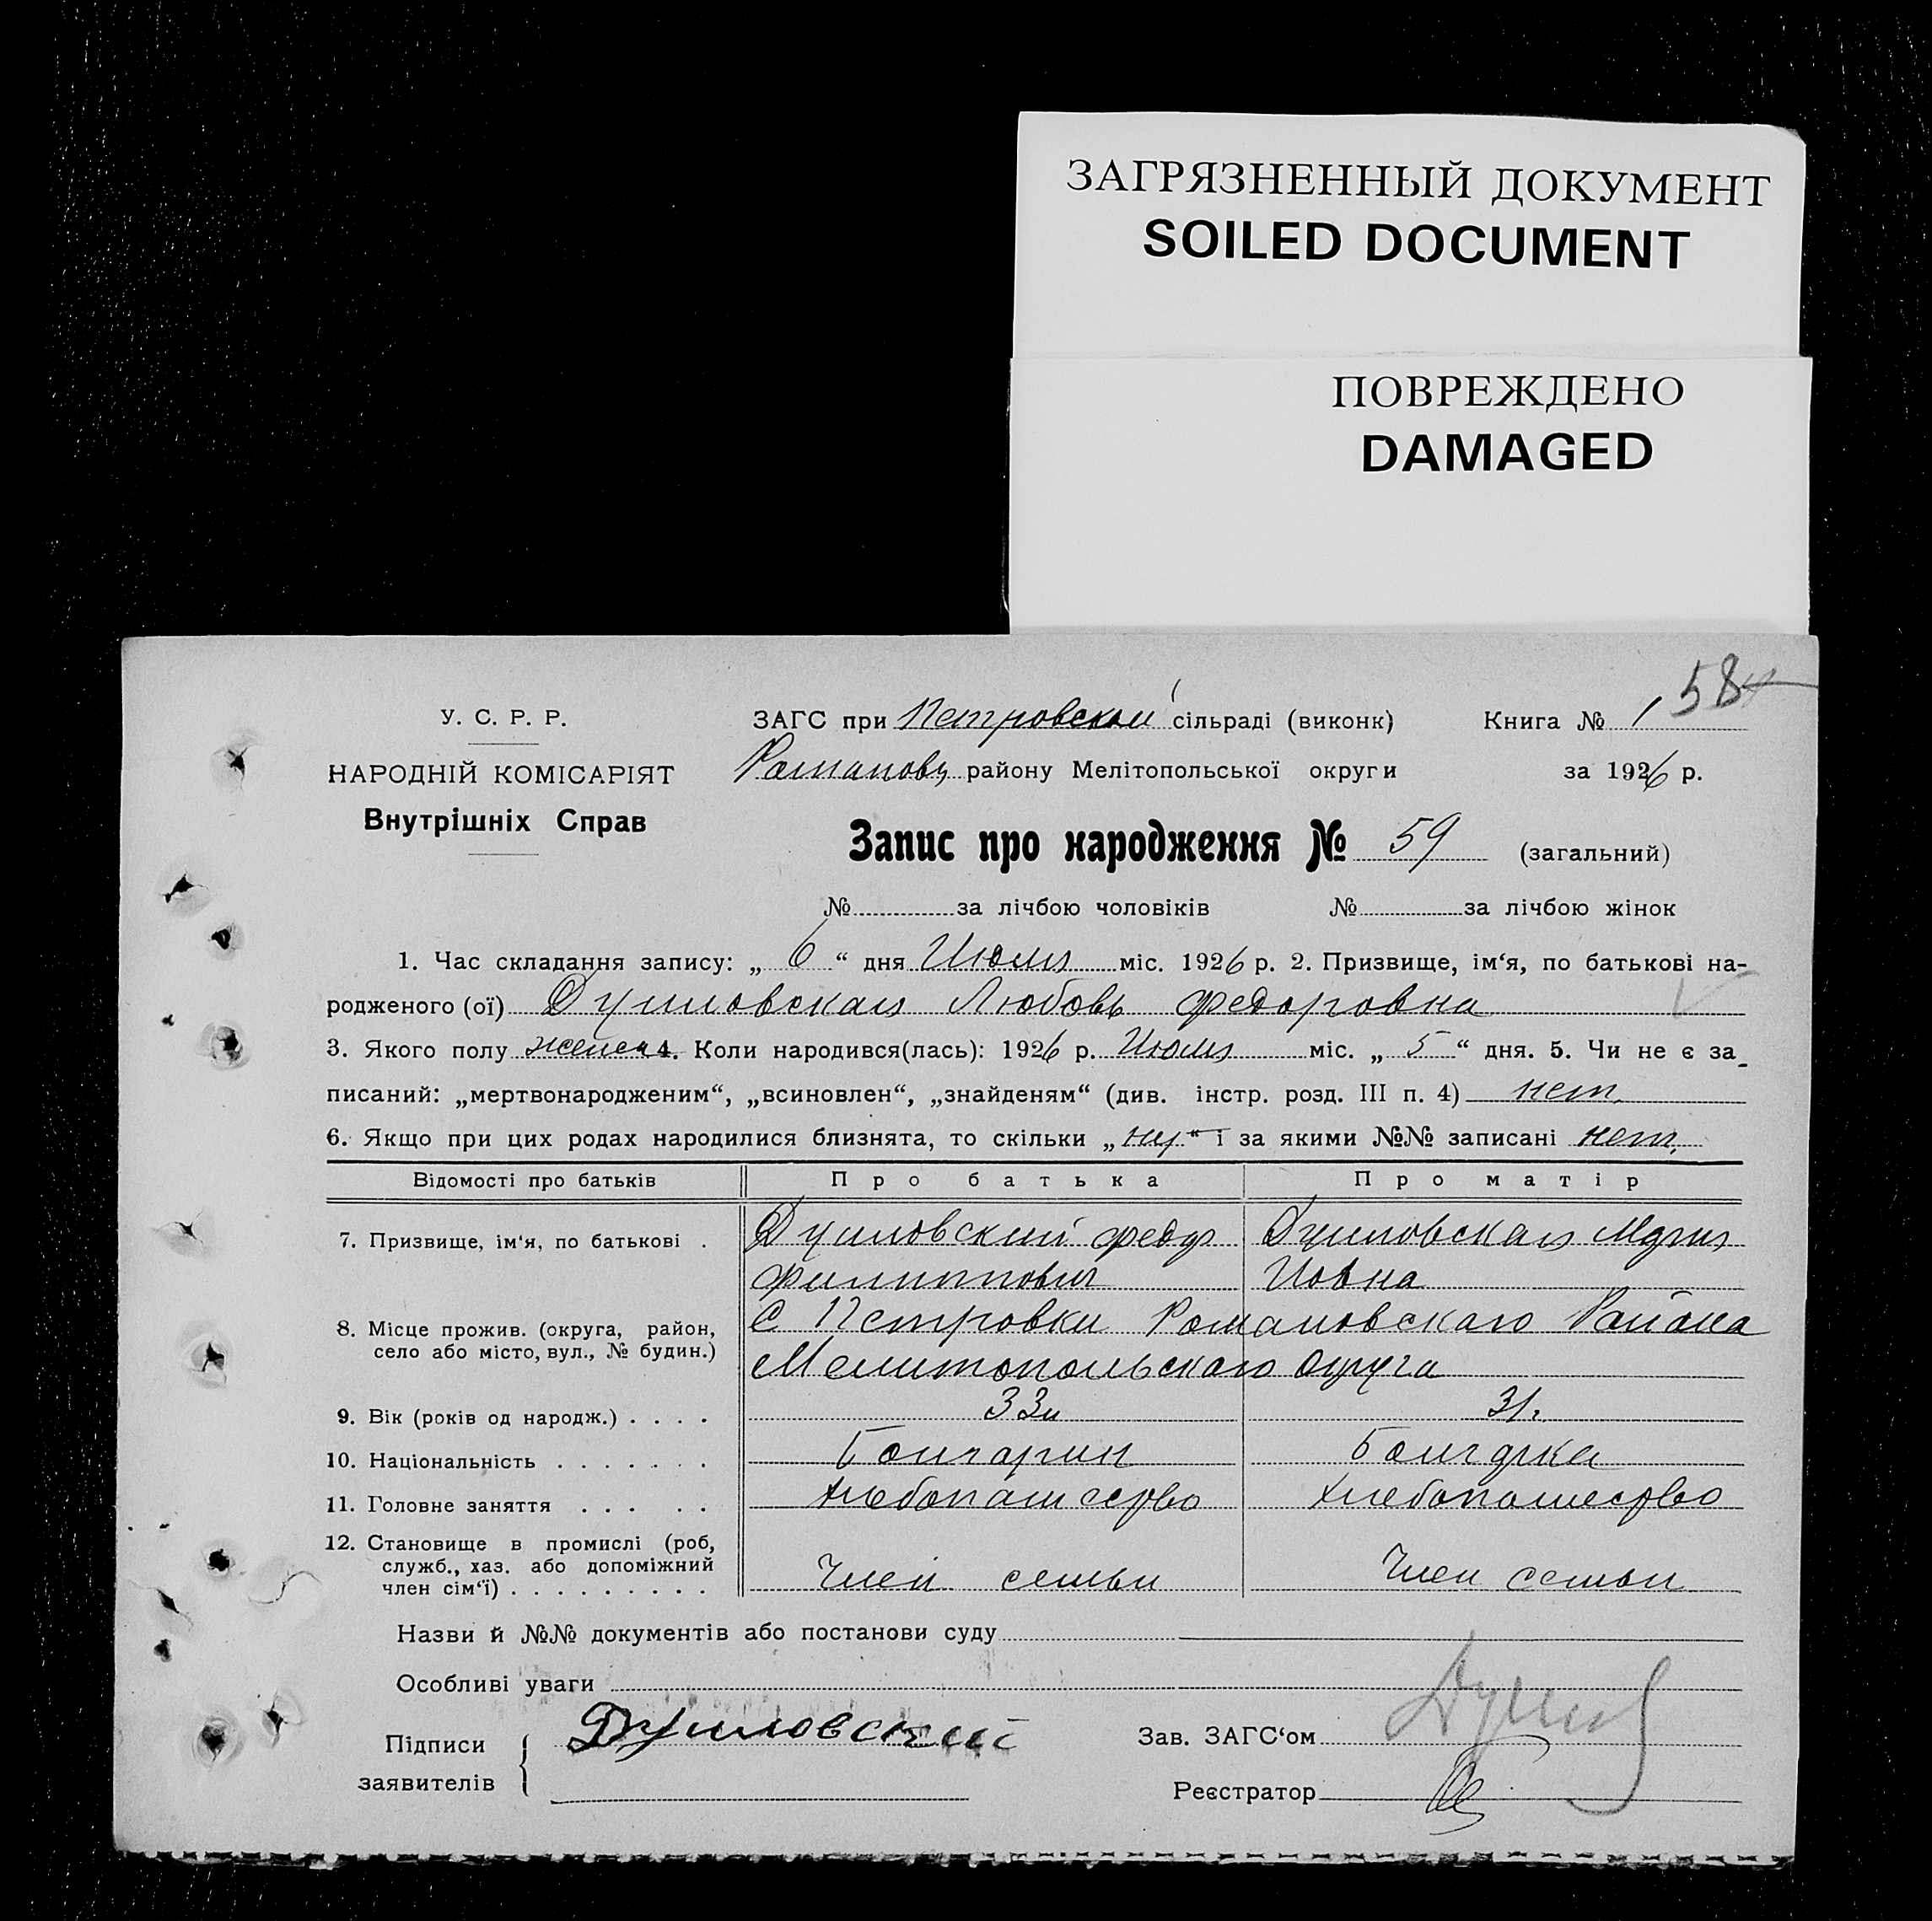 ЗАГРЯЗНЕННЫЙ ДОКУМЕНТ
SOILED DOCUMENT
ПОВРЕЖДЕНО
DAMAGED
58
У. С. Р. Р.
ЗАГС при Петровской сільраді (виконк)
Книга № 1
НАРОДНІЙ КОМІСАРІЯТ
Романовск району Мелітопольської округи
за 1926 р.
Внутрішніх Справ
Запис про народження № 59 (загальний)
№ за лічбою чоловіків № за лічбою жінок
1. Час складання запису: „ 6 “ дня Июля міс. 1926 р. 2. Призвище, ім‘я, по батькові на-
родженого (ої) Душловская Любовь Федоровна
3. Якого полу женск 4. Коли народився(лась): 1926 р. Июля міс. „ 5 “ дня. 5. Чи не є за-
писаний: „мертвонародженим“, „всиновлен“, „знайденям“ (див. інстр. розд. III п. 4) нет.
6. Якщо при цих родах народилися близнята, то скільки „ “ і за якими №№ записані нет.
Відомості про батьків Про батька Про матір
7. Призвище, ім‘я, по батькові . Душловский Федор Душловская Мария
Филиппович Иовна
8. Місце прожив. (округа, район, село або місто, вул., № будин.) С Петровки Романовскаго Района
Мелитопольскаго округа
9. Вік (років од народж.) . . . . 33 31.
10. Національність . . . . . . . Болгарин Болгарка
11. Головне заняття . . . . . Хлебопашество Хлебопашество
12. Становище в промислі (роб,
служб., хаз. або допоміжний
член сім‘ї) . . . . . . . . . Член семьи Член семьи
Назви й №№ документів або постанови суду
Особливі уваги
Підписи
заявителів
Душловский
Зав. ЗАГС‘ом
Реєстратор